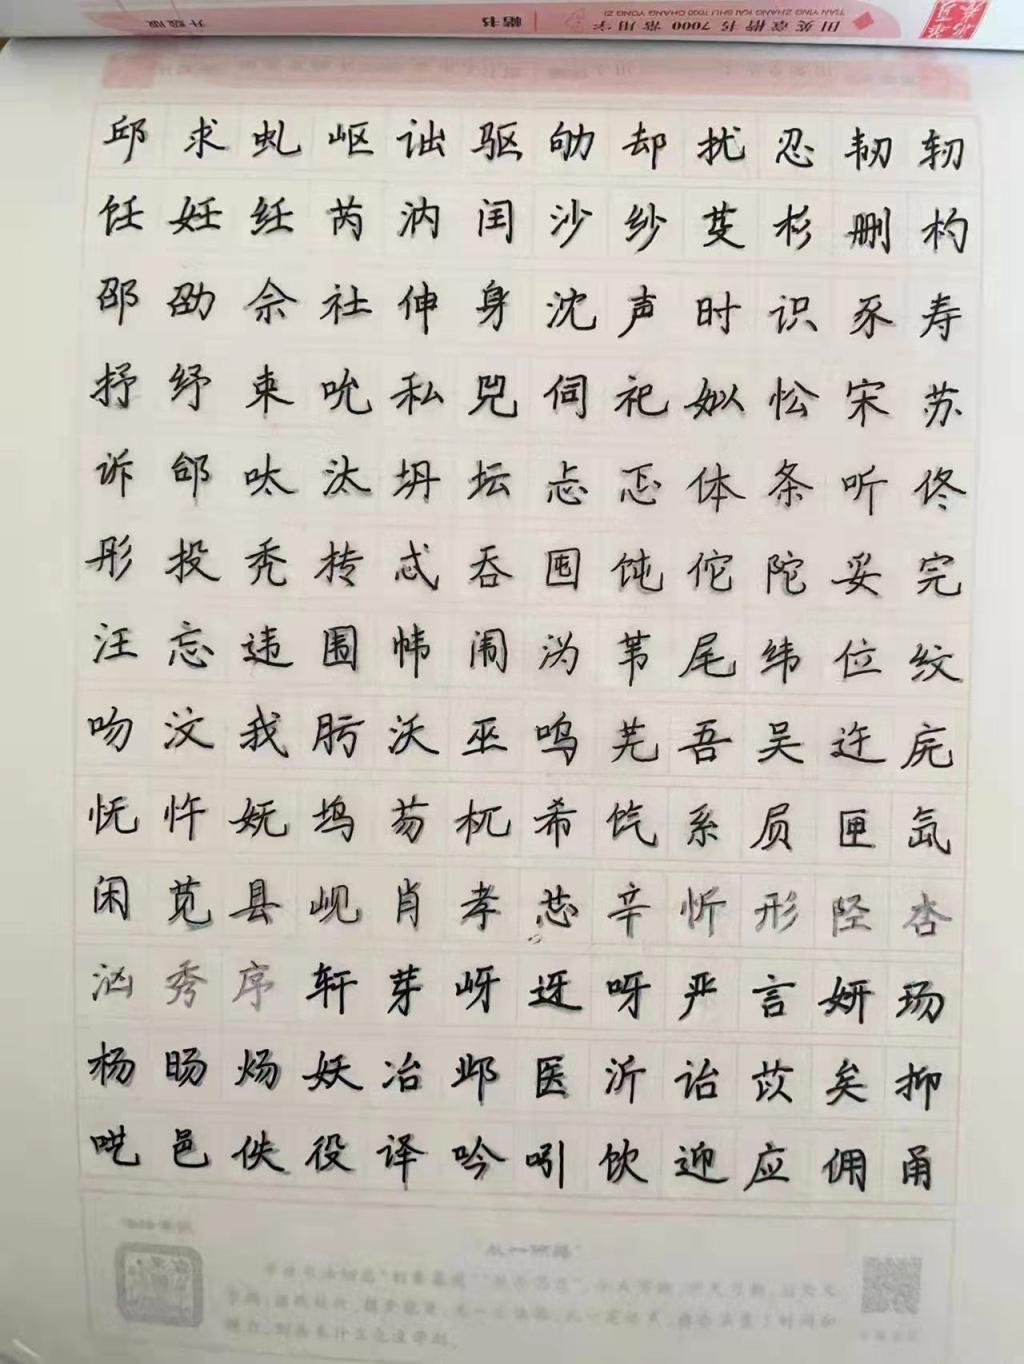 田英章楷书7000常用字
TIAN YING ZHANG KAI SHU 7000 CHANG YONG ZI
楷书
升级版
邱求虬岖诎驱劬却扰忍韧轫
饪妊纴芮汭闰沙纱芟杉删杓
邵劭佘社伸身沈声时识豕寿
抒纾束吮私兕伺祀姒忪宋苏
诉邰呔汰坍坛忐忑体条听佟
彤投秃抟忒吞囤饨佗陀妥完
汪忘违围帏闱沩苇尾纬位纹
吻汶我肟沃巫呜芜吾吴迕庑
怃忤妩坞芴杌希饩系员匣氙
闲苋县岘肖孝芯辛忻形陉杏
汹秀序轩芽岈迓呀严言妍玚
杨旸炀妖冶邺医沂诒苡矣抑
呓邑佚役译吟吲饮迎应佣甬